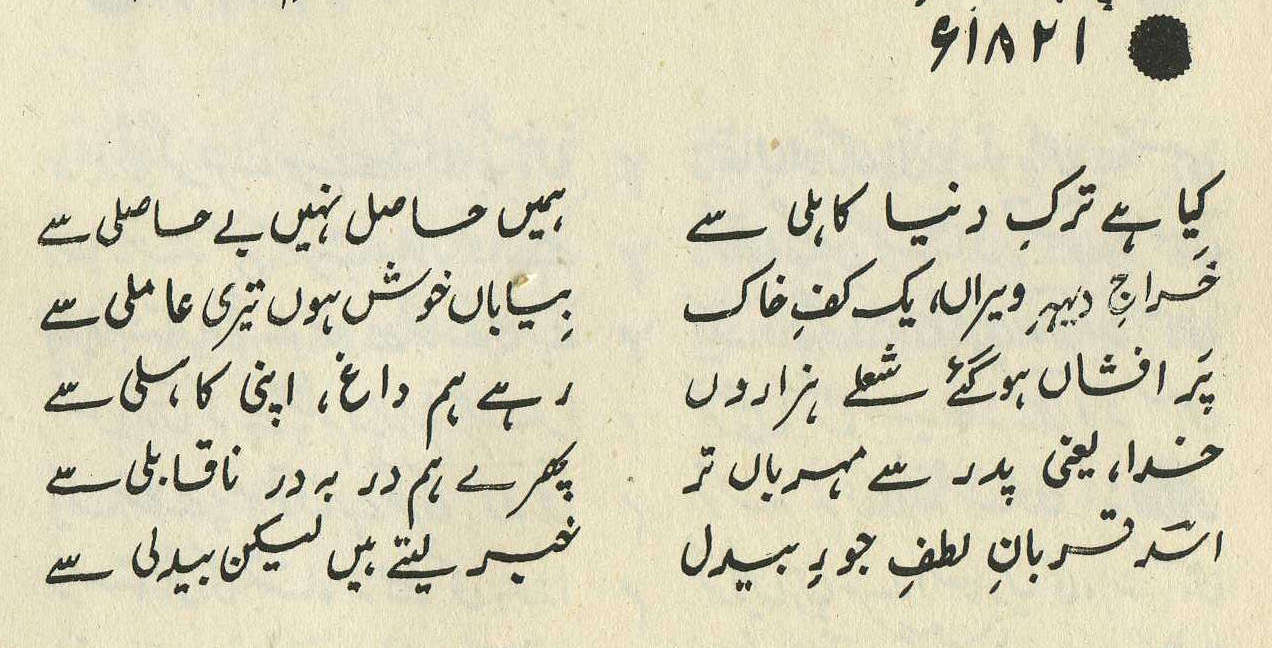 ۱۸۲۱ء
کیا ہے ترکِ دنیا کاہلی سے ہمیں حاصل نہیں بے حاصلی سے
خَراجِ دیہہِ ویراں، یک کفِ خاک بِیاباں خوش ہوں تیری عاملی سے
پَر افشاں ہو گئے شعلے ہزاروں رہے ہم داغ، اپنی کاہلی سے
خدا، یعنی پدر سے مہرباں تر پھرے ہم در بہ در ناقابلی سے
اسدؔ قربانِ لطفِ جورِ بیدل خبر لیتے ہیں لیکن بیدلی سے